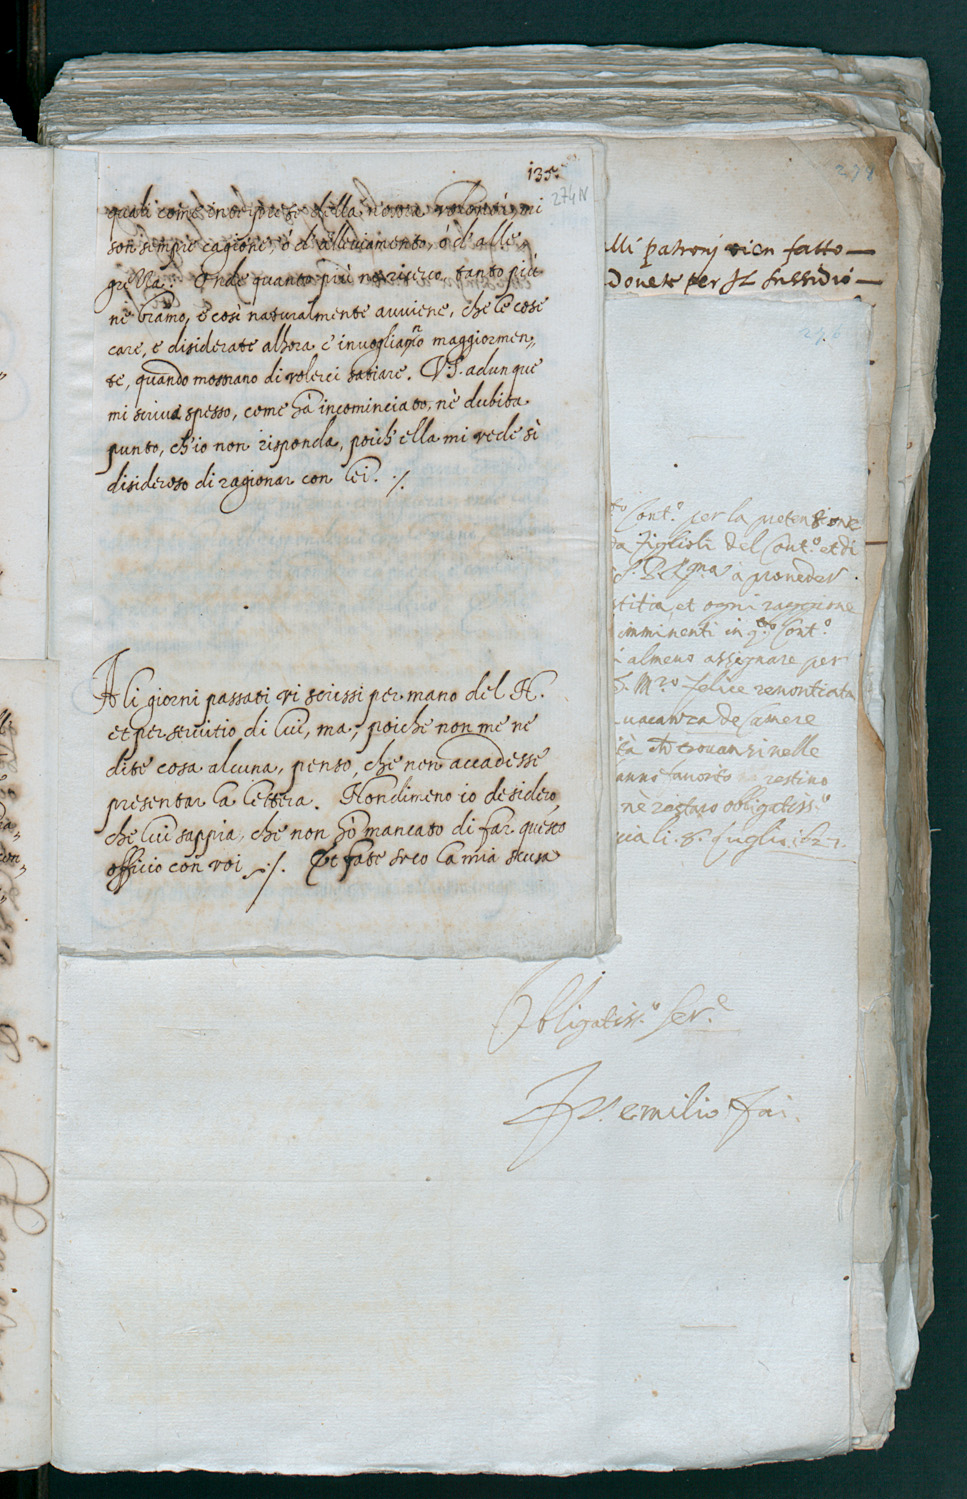 135.
274N
quali come interprete della nostra volontà, mi
son sempre cagione, ó d'alleviamento, ó d'alle-
grezza. Onde quanto più ne ricerco, tanto più
ne bramo, e così naturalmente auuiene, che le cose
care, e disiderate alhora c'inuogliano maggiormen,,
te, quando mostrano di volerci satiare. V.S. adunque
mi scriua spesso, come hà incominciato, nè dubita
punto, ch'io non risponda, poich'ella mi vede sì
disideroso di ragionar con lei. ./.
A li giorni passati vi scrissi per mano del N.
et per seruitio di lui, ma, poiche non me ne
dite cosa alcuna, penso, che non accadesse
presentar la lettera. Nondimeno io desidero,
che lui sappia, che non hò mancato di far questo
officio con voi ./. Et fate seco la mia scusa
alli patroni vien fatto —
Donete per Il sussidio —
276
Cont.º per la pretensione
figlioli del Cont.º et di
à proueder
stitia, et ogni raggione
imminenti in q.to Cont.º
almeno assignare per
S. M.ro felice renontiata
uacanza de Camere
trouansi nelle
anno fauorito restino
nè restero obligatiss.º
li. 8. luglio
Obligatiss.º ser.e
emilio fai.